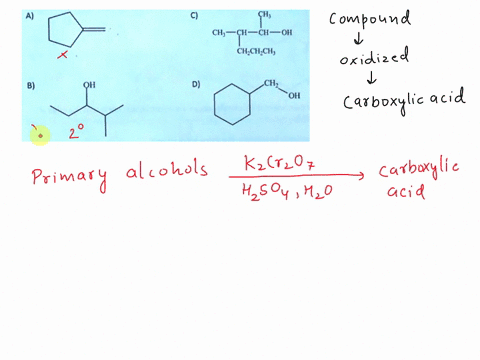 A)
C)
CH₃
CH₃—CH—CH—OH
CH₂CH₂CH₃
x
B)
OH
2°
D)
CH₂
OH
Compound
↓
oxidized
↓
Carboxylic acid
Primary alcohols K₂Cr₂O₇ Carboxylic
H₂SO₄, H₂O acid